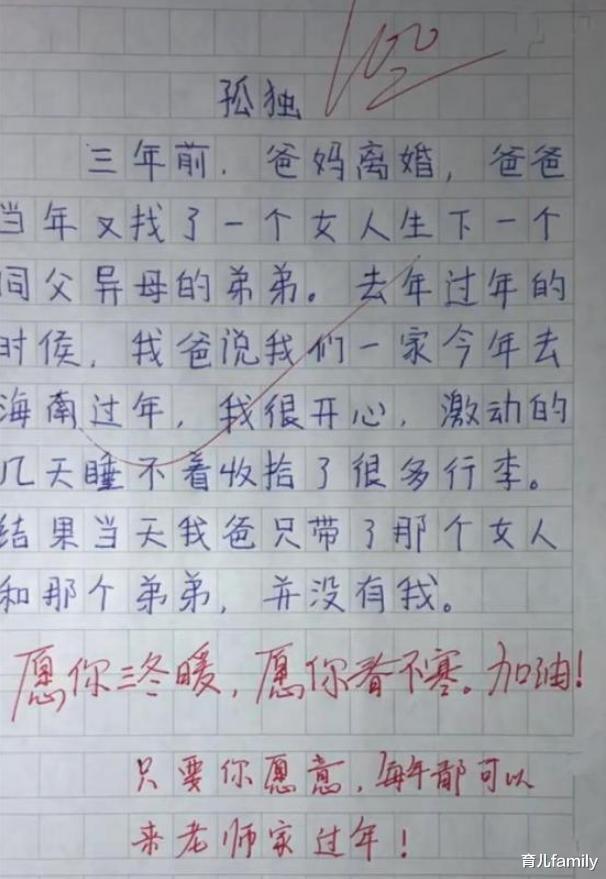 100
孤独
三年前，爸妈离婚，爸爸
当年又找了一个女人生下一个
同父异母的弟弟。去年过年的
时侯，我爸说我们一家今年去
海南过年，我很开心，激动的
几天睡不着收拾了很多行李。
结果当天我爸只带了那个女人
和那个弟弟，并没有我。
愿你三冬暖，愿你春不寒。加油！
只要你愿意，每年都可以
来老师家过年！
育儿family